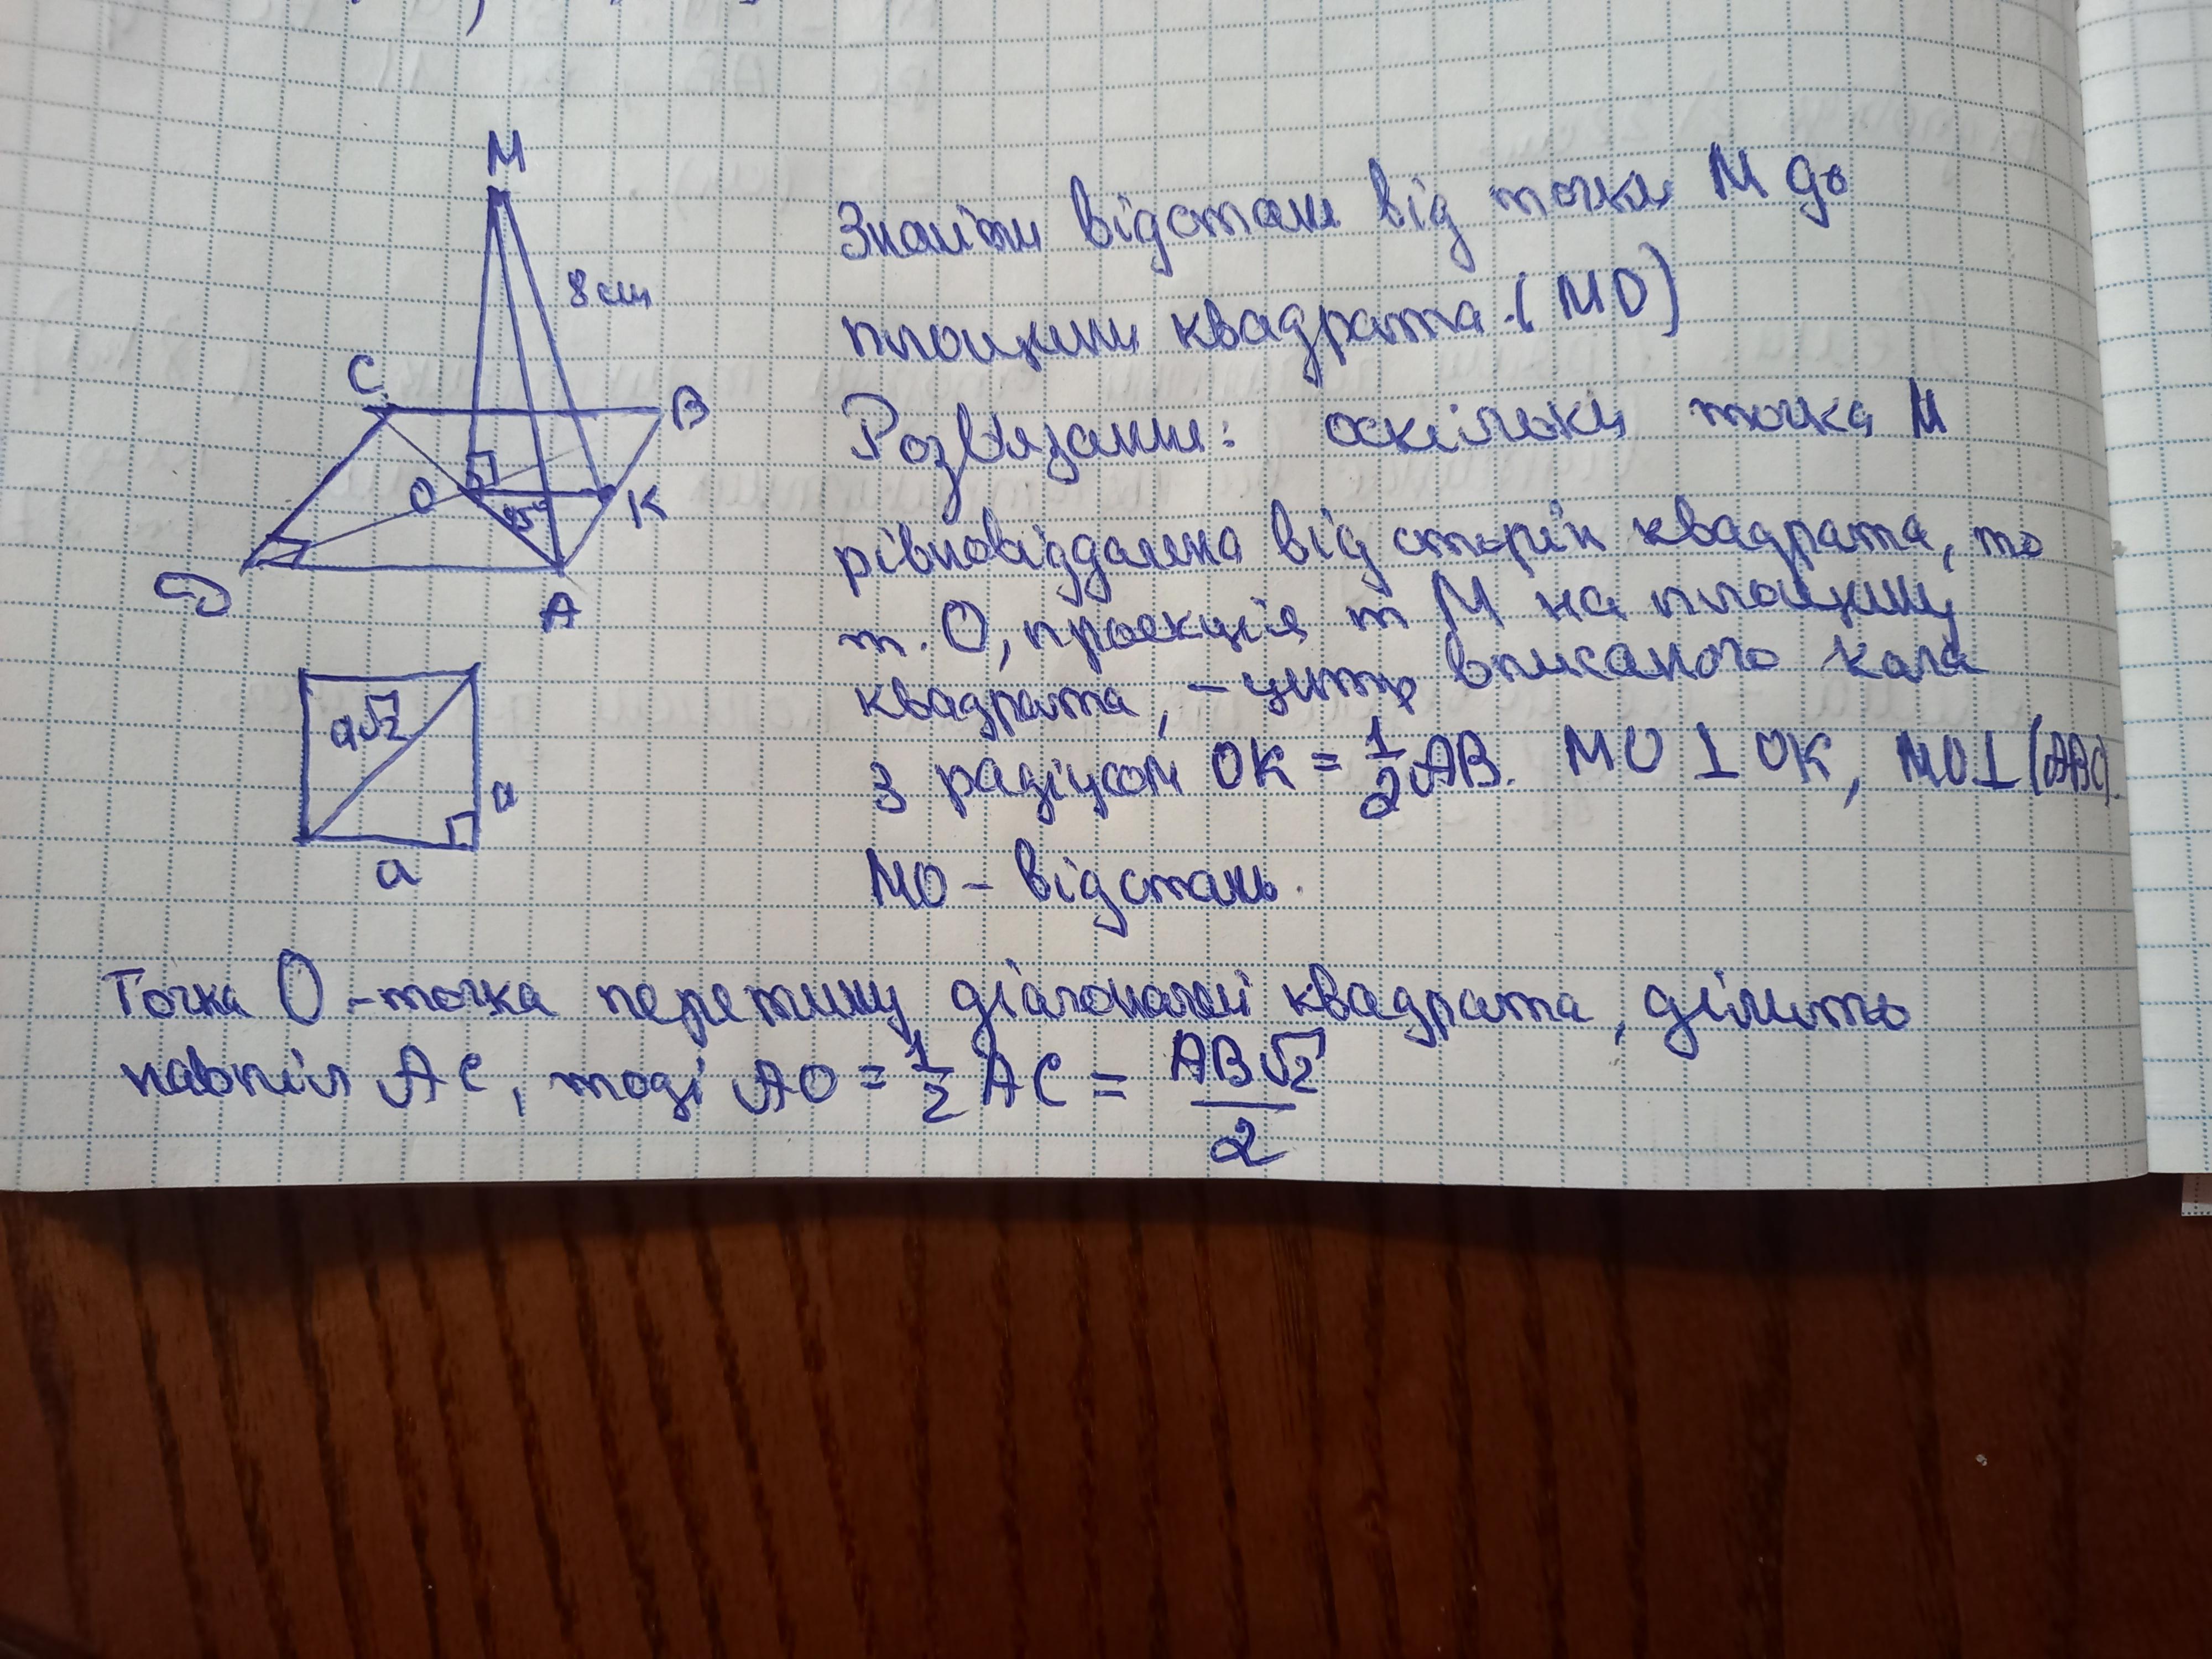 М
8 см
С
В
О
К
45°
D
А
a√2
a
a
Знайти відстань від точки М до
площини квадрата. (МО)
Розв'язання: оскільки точка М
рівновіддалена від сторін квадрата, то
т. О, проекція т М на площину
квадрата, – центр вписаного кола
з радіусом ОК = 1/2 АВ. МО ⊥ ОК, МО ⊥ (АВС).
МО – відстань.
Точка О – точка перетину діагоналей квадрата, ділить
навпіл АС, тоді АО = 1/2 АС = АВ√2/2